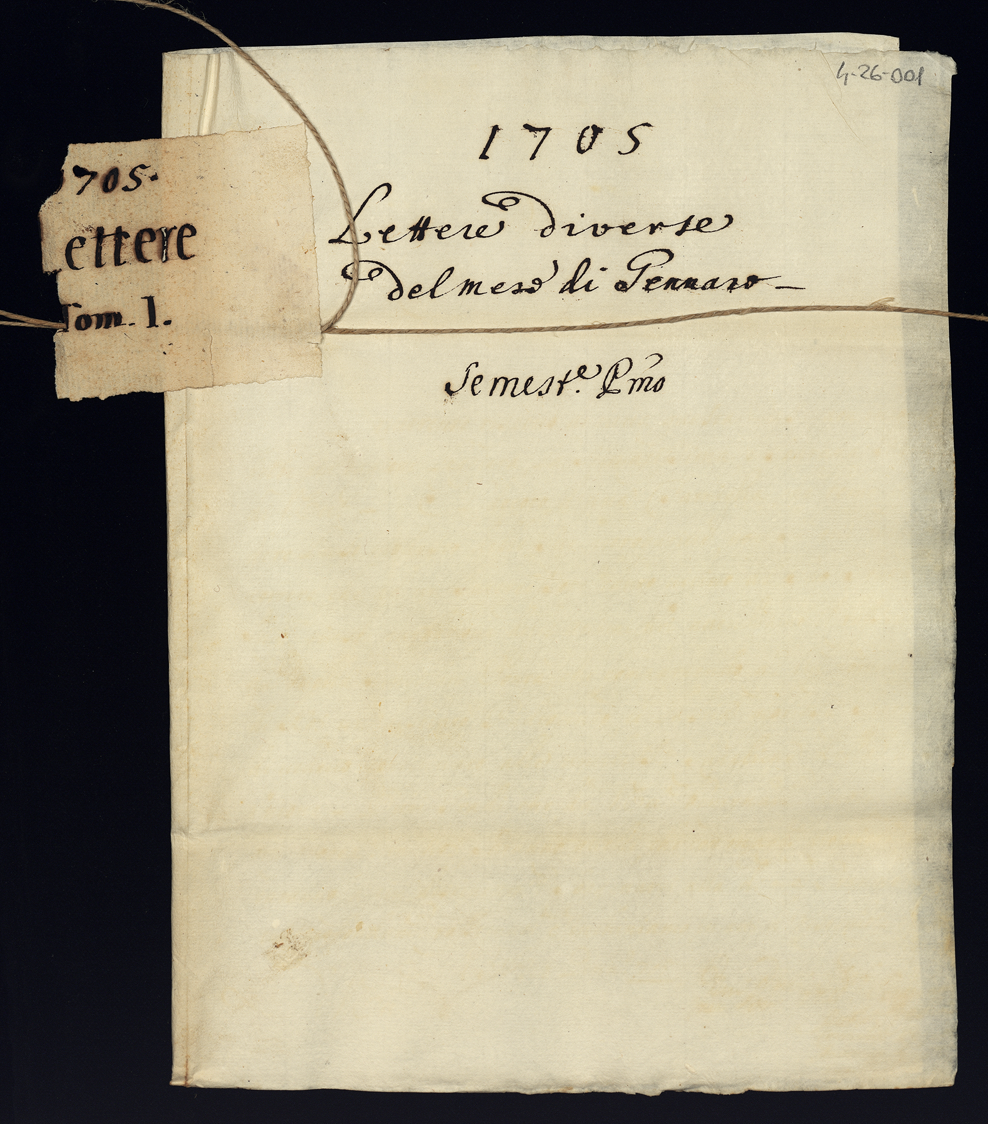 4-26-001
1705
Lettere diverse
del mese di Gennaro
Semest.e P.mo
705.
ettere
Tom. 1.